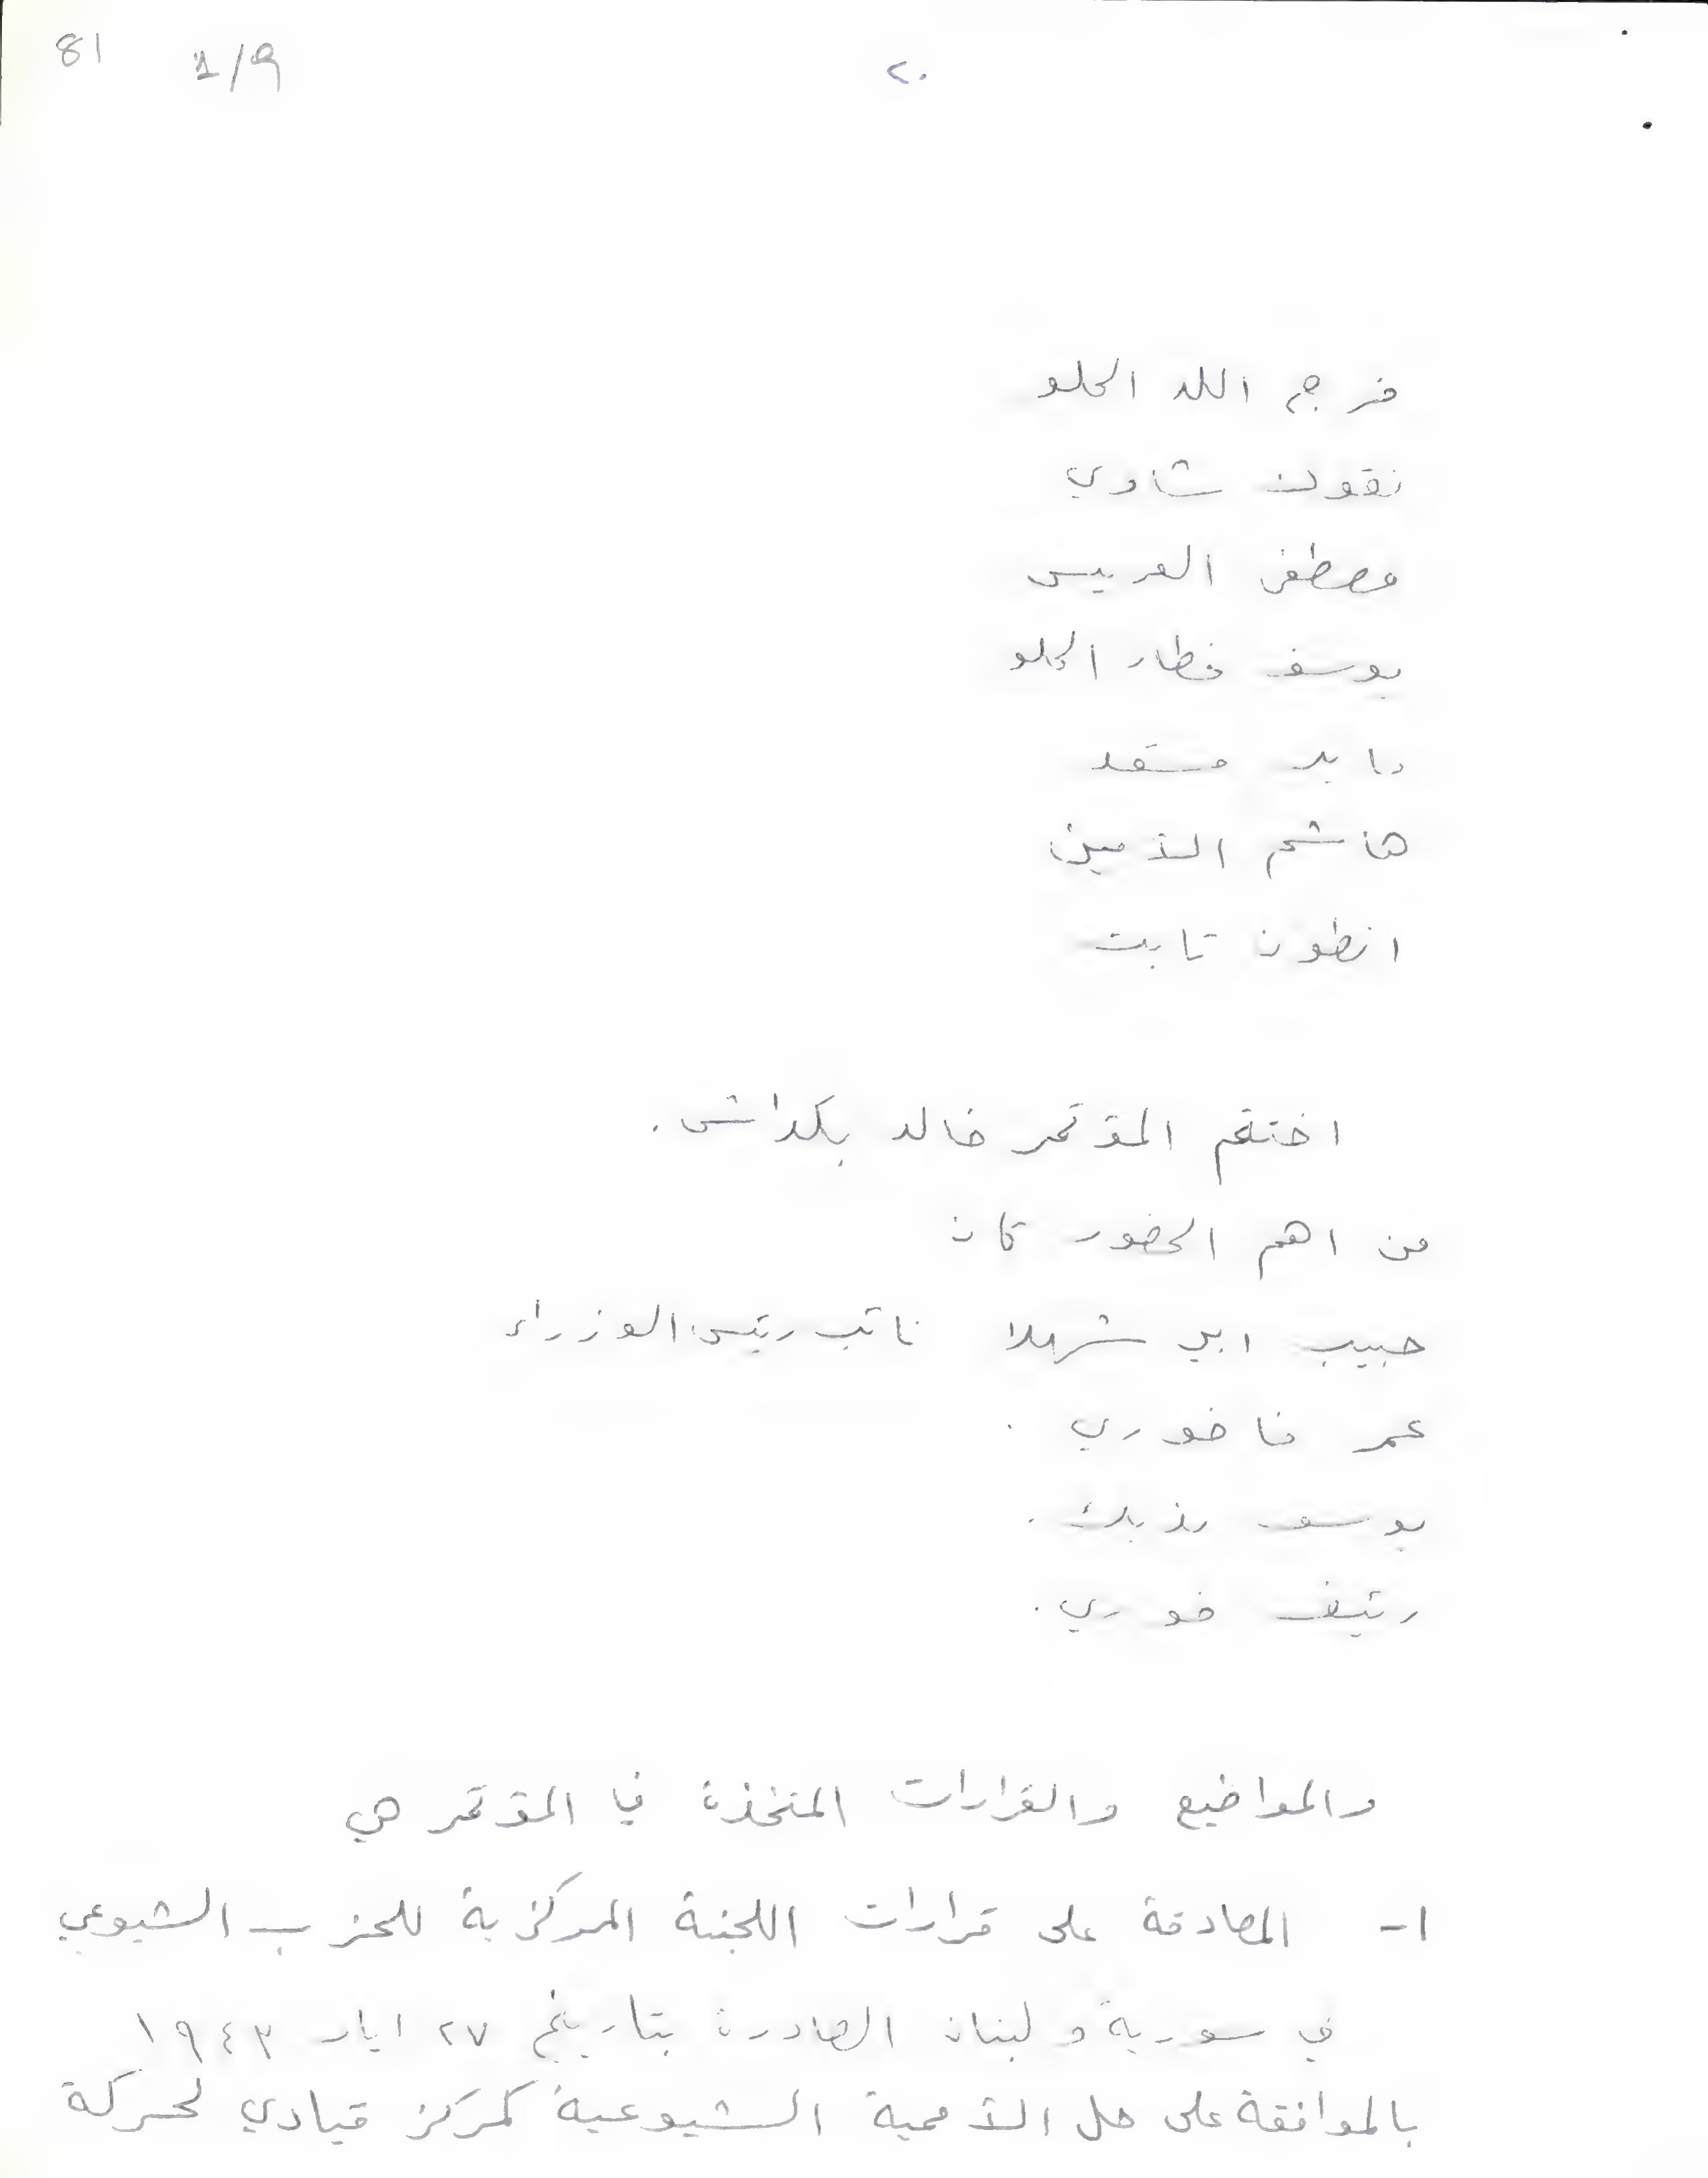 81 1/9 ٢٠
فرج الله الحلو
نقولا شاوي
مصطفى العريس
يوسف خطار الحلو
هاشم الأمين
انطون تابت
اختتم المؤتمر خالد بكداش.
من اهم الحضور كان
حبيب ابي شهلا نائب رئيس الوزراء
عمر فاخوري .
يوسف يزبك .
رئيف خوري .
والمواضيع والقرارات المتخذة في المؤتمر هي
١- المصادقة على قرارات اللجنة المركزية للحزب الشيوعي
في سورية ولبنان الصادرة بتاريخ ٢٧ ايار ١٩٤٣
بالموافقة على حل الأممية الشيوعية كمركز قيادي لحركة